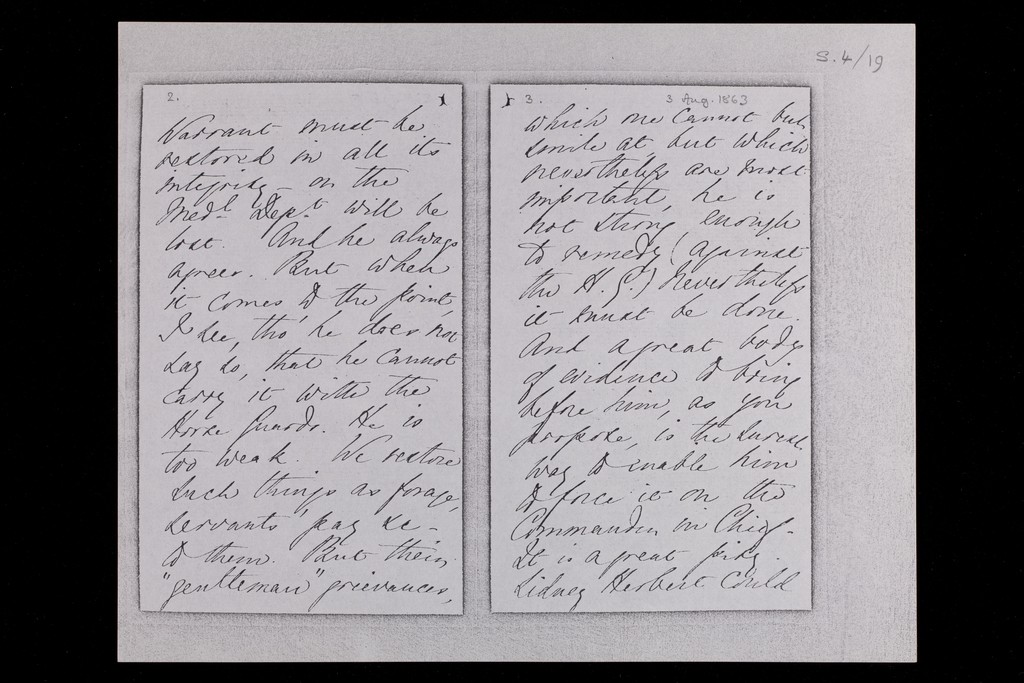 S.4/19
2.
Warrant must be
restored in all its
integrity - or the
Medl. Dept. will be
lost. And he always
agrees. But when
it comes to the point,
I see, tho' he does not
say so, that he cannot
carry it with the
Horse Guards. He is
too weak. We restore
such things as forage,
servants' pay &c -
to them. But their
"gentleman" grievances,
3.
3 Aug. 1863
which one cannot but
smile at, but which
nevertheless are most
important, he is
not strong enough
to remedy (against
the H.G.) Nevertheless
it must be done.
And a great body
of evidence to bring
before him, as you
propose, is the surest
way to enable him
to force it on the
Commander in Chief -
It is a great pity
Sidney Herbert could